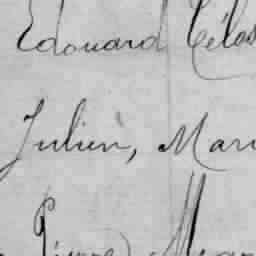 Edouard Célas
Julien, Mari
Pierre